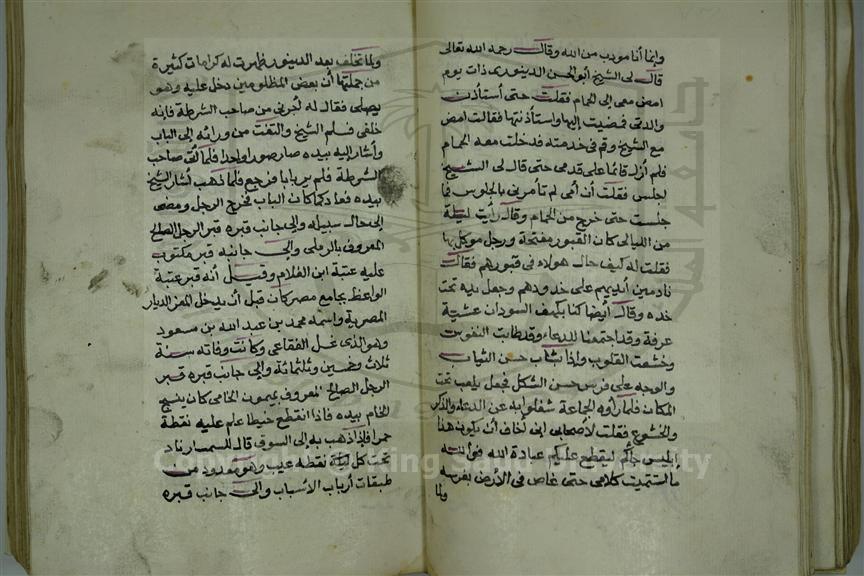 وإنما أنا مودب من الله وقال رحمه الله تعالى
قال لى الشيخ أبو الحسن الدينورى ذات يوم
امض معى إلى الحمام فقلت حتى أستأذن
والدتى فمضيت إليها واستأذنتها فقالت امض
مع الشيخ وقم فى خدمته فدخلت معه الحمام
فلم أزل قائما على قدمى حتى قال لى الشيخ
اجلس فقلت أن أمى لم تأمرنى بالجلوس فما
جلست حتى خرج من الحمام وقال رأيت ليلة
من الليالى كان القبور مفتحة ورجل موكل بها
فقلت له كيف حال هولاء فى قبورهم فقال
نادمين أيديهم على خدودهم وجعل يده تحت
خده وقال أيضا كنا بكهف السودان عشية
عرفة وقد اجتمعنا للدعاء وقد طابت النفوس
وخشعت القلوب وإذا بشاب حسن الثياب
والوجه على فرس حسن الشكل فجعل يلعب تحت
المكان فلما رأوه الجماعة شغلوا به عن الدعاء والذكر
والخشوع فقلت لأصحابى انى أخاف أن يكون هذا
إبليس جاكم ليقطع عليكم عبادة الله فوالله
ما استتميت كلامى حتى غاص فى الأرض بفرسه
ولما
ولما تخلف بعد الدينورى ظهرت له كرامات كثيرة
من جملتها أن بعض المظلومين دخل عليه وهو
يصلى فقال له أجرنى من صاحب الشرطة فإنه
خلفى فسلم الشيخ والتفت من ورائه إلى الباب
وأشار إليه بيده صار صورا واحدا فلما أتى صاحب
الشرطة فلم ير بابا فرجع فلما ذهب أشار الشيخ
بيده فعاد كما كان الباب فخرج الرجل ومضى
إلى حال سبيله وإلى جانب قبره قبر الرجل الصالح
المعروف بالرملى وإلى جانبه قبر مكتوب
عليه عتبة ابن الغلام وقيل أنه قبر عتبة
الواعظ بجامع مصر كان قبل أن يدخل المعز الديار
المصرية واسمه محمد بن عبد الله بن مسعود
وهو الذى غسل الفقاعى وكانت وفاته سنة
ثلاث وخمسين وثلثمائة وإلى جانب قبره قبر
الرجل الصالح المعروف بميمون الخامى كان ينسج
الخام بيده فاذا انقطع خيطا علم عليه نقطة
حمرا فإذا ذهب به إلى السوق قال للسمسار ناد
تحت كل نقطة عيب وهو معدود من
طبقات أرباب الأسباب وإلى جانب قبره